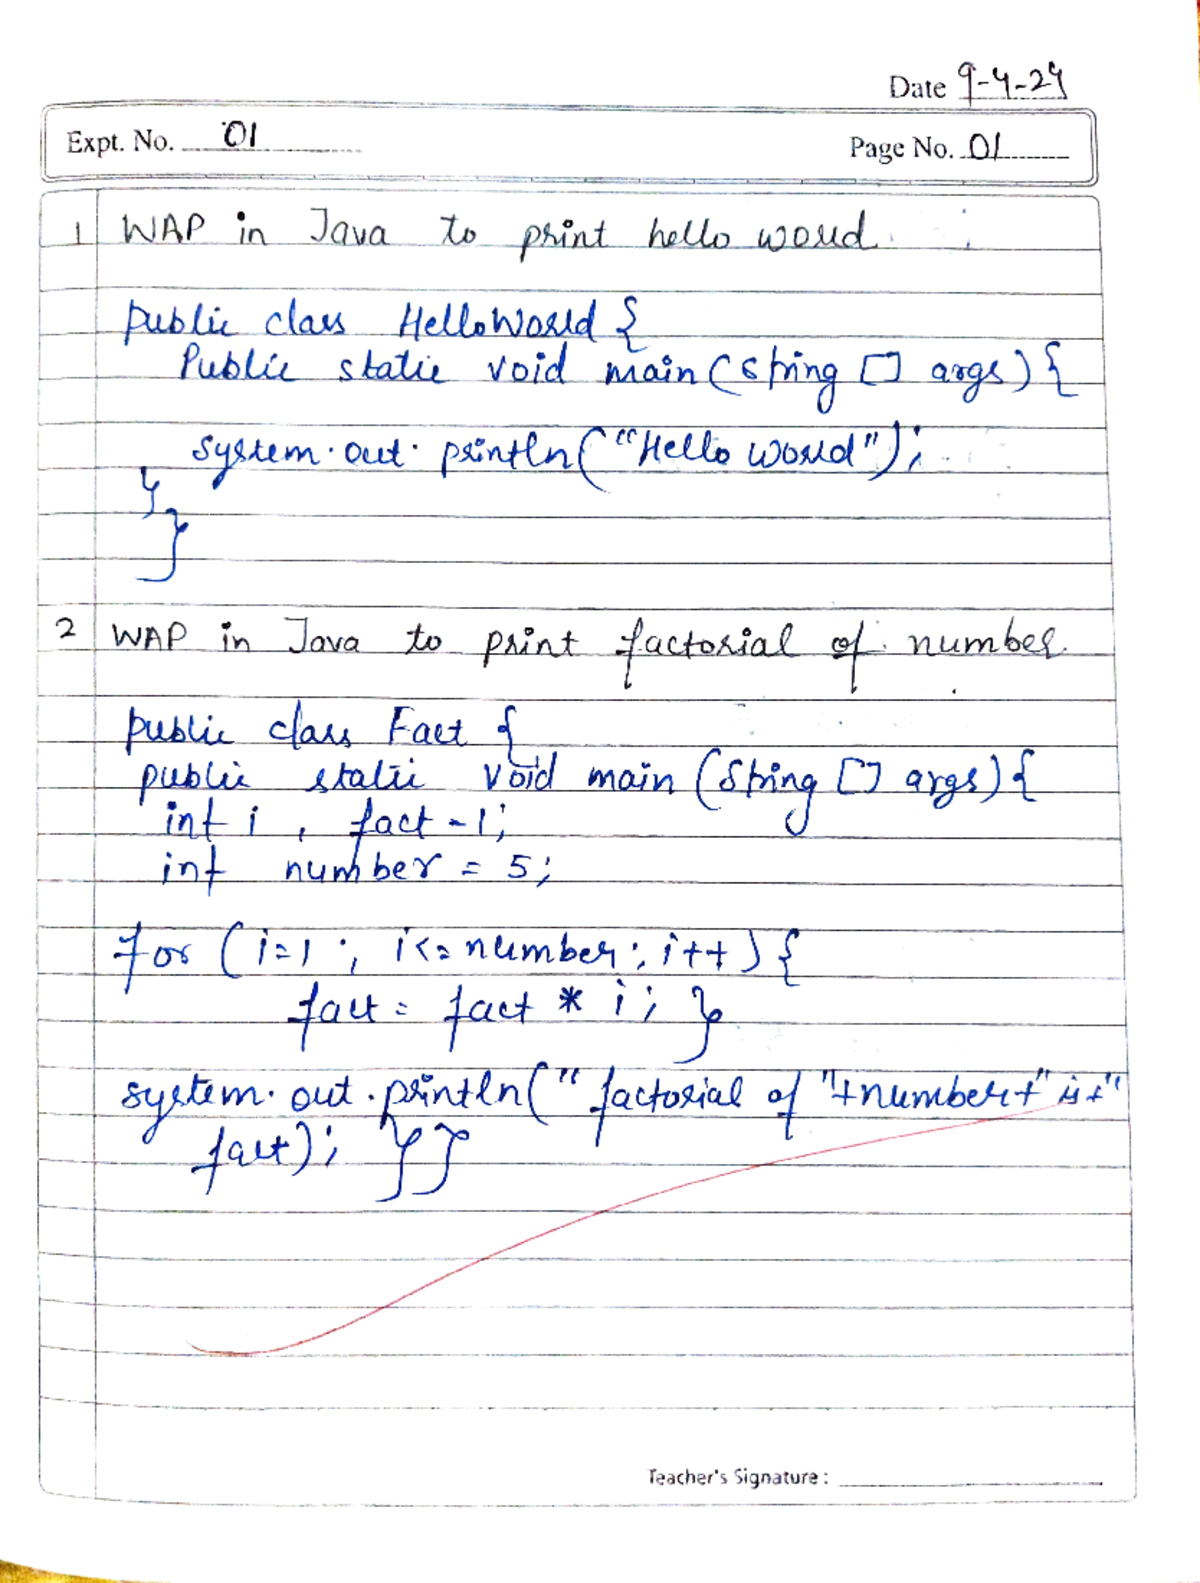 Date 9-4-24
Expt. No. 01
Page No. 01
1 WAP in Java to print hello world.
public class HelloWorld {
Public static void main (String [] args) {
system.out.println("Hello world");
}
}
2 WAP in Java to print factorial of number
public class Fact {
public static void main (String [] args) {
int i, fact - 1;
int number = 5;
for (i=1 ; i<= number ; i++) {
fact = fact * i; }
system.out.println(" factorial of "+number+" is+"
fact); }}
Teacher's Signature :